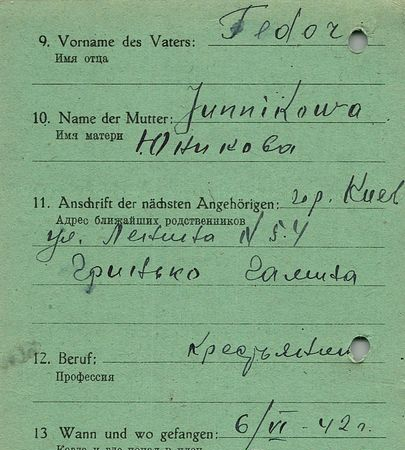 9. Vorname des Vaters: Fedor
Имя отца
10. Name der Mutter: Junnikowa
Имя матери Юникова
11. Anschrift der nächsten Angehörigen: гор. Киев
Адрес ближайших родственников
ул. Ленина N 54
Гринько Галина
12. Beruf: крестьянин
Профессия
13 Wann und wo gefangen: 6/VI - 42 г.
Когда и где попал в плен